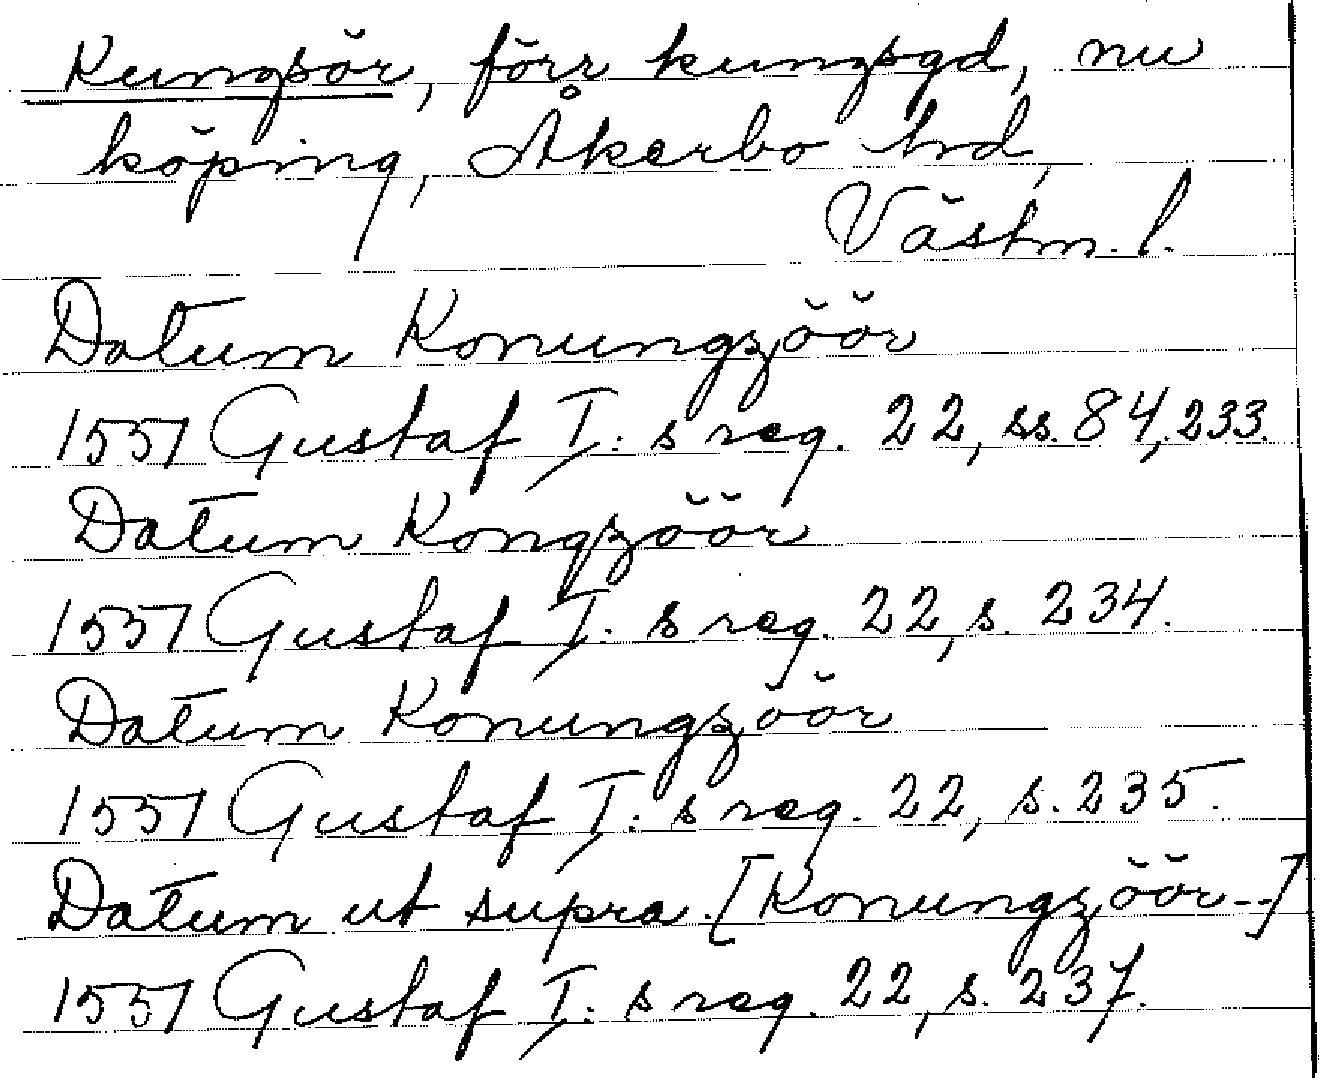 Kungsör, förr kungsgd, nu
köping, Åkerbo hrd,
Västm. l.
Datum Konungzöör
1551 Gustaf I: s reg. 22, ss. 84, 233.
Datum Kongzöör
1551 Gustaf I: s reg. 22, s. 234.
Datum Konungzöör
1551 Gustaf I: s reg. 22, s. 235.
Datum ut supra. [Konungzöör--]
1551 Gustaf I: s reg. 22, s. 237.